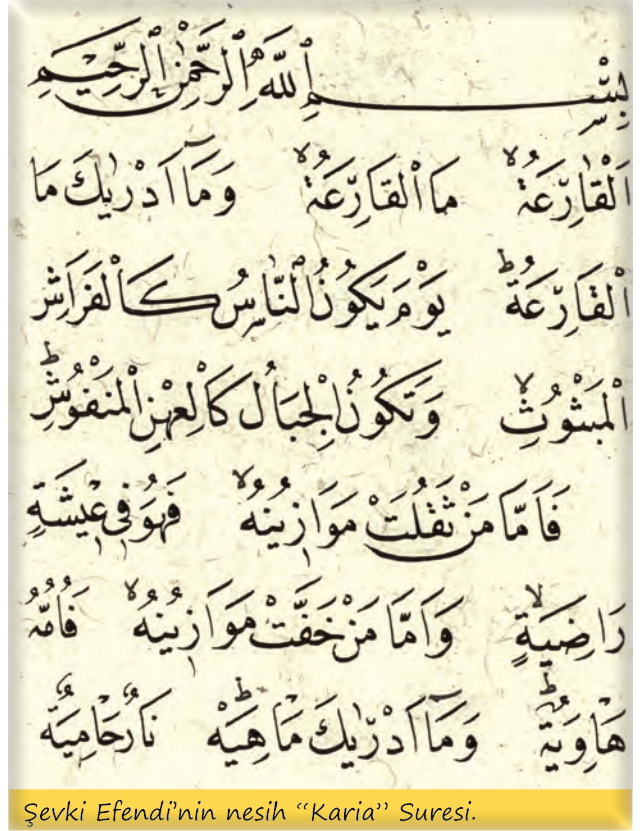 بِسْمِ اللهِ الرَّحْمٰنِ الرَّحِيمِ
اَلْقَارِعَةُۙ مَا الْقَارِعَةُۙ وَمَآ اَدْرٰيكَ مَا
الْقَارِعَةُۜ يَوْمَ يَكُونُ النَّاسُ كَالْفَرَاشِ
الْمَبْثُوثِۙ وَتَكُونُ الْجِبَالُ كَالْعِهْنِ الْمَنْفُوشِۜ
فَاَمَّا مَنْ ثَقُلَتْ مَوَازِينُهُۙ فَهُوَ فِى عِيشَةٍ
رَاضِيَةٍۙ وَاَمَّا مَنْ خَفَّتْ مَوَازِينُهُۙ فَاُمُّهُ
هَاوِيَةٌۜ وَمَآ اَدْرٰيكَ مَا هِيَهْۜ نَارٌ حَامِيَةٌ
Şevki Efendi’nin nesih “Karia” Suresi.